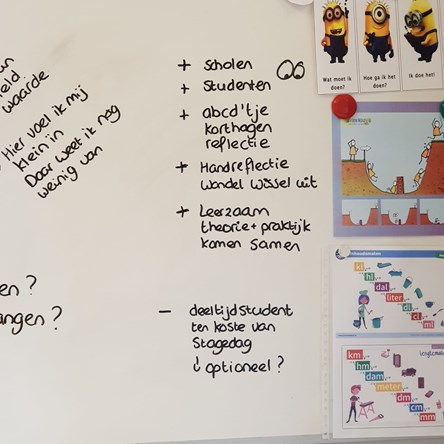 un
eld
waarde
Hier voel ik mij
klein in
Daar weet ik nog
weinig van
en?
angen?
+ Scholen
+ Studenten
+ abcd'tje
korthagen
reflectie
+ Handreflectie
wandel wissel uit
+ Leerzaam
theorie + praktijk
komen samen
- deeltijdstudent
ten koste van
Stagedag
optioneel?
Wat moet ik
doen?
Hoe ga ik het
doen?
Ik doe het!
kl
hl
dal
liter
dl
cl
ml
km
hm
dam
meter
dm
cm
mm